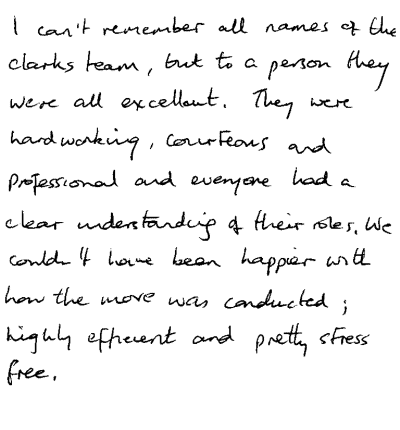 I can't remember all names of the
clarks team, but to a person they
were all excellent. They were
hardworking, courteous and
professional and everyone had a
clear understanding of their roles. We
couldn't have been happier with
how the move was conducted;
highly efficient and pretty stress
free.